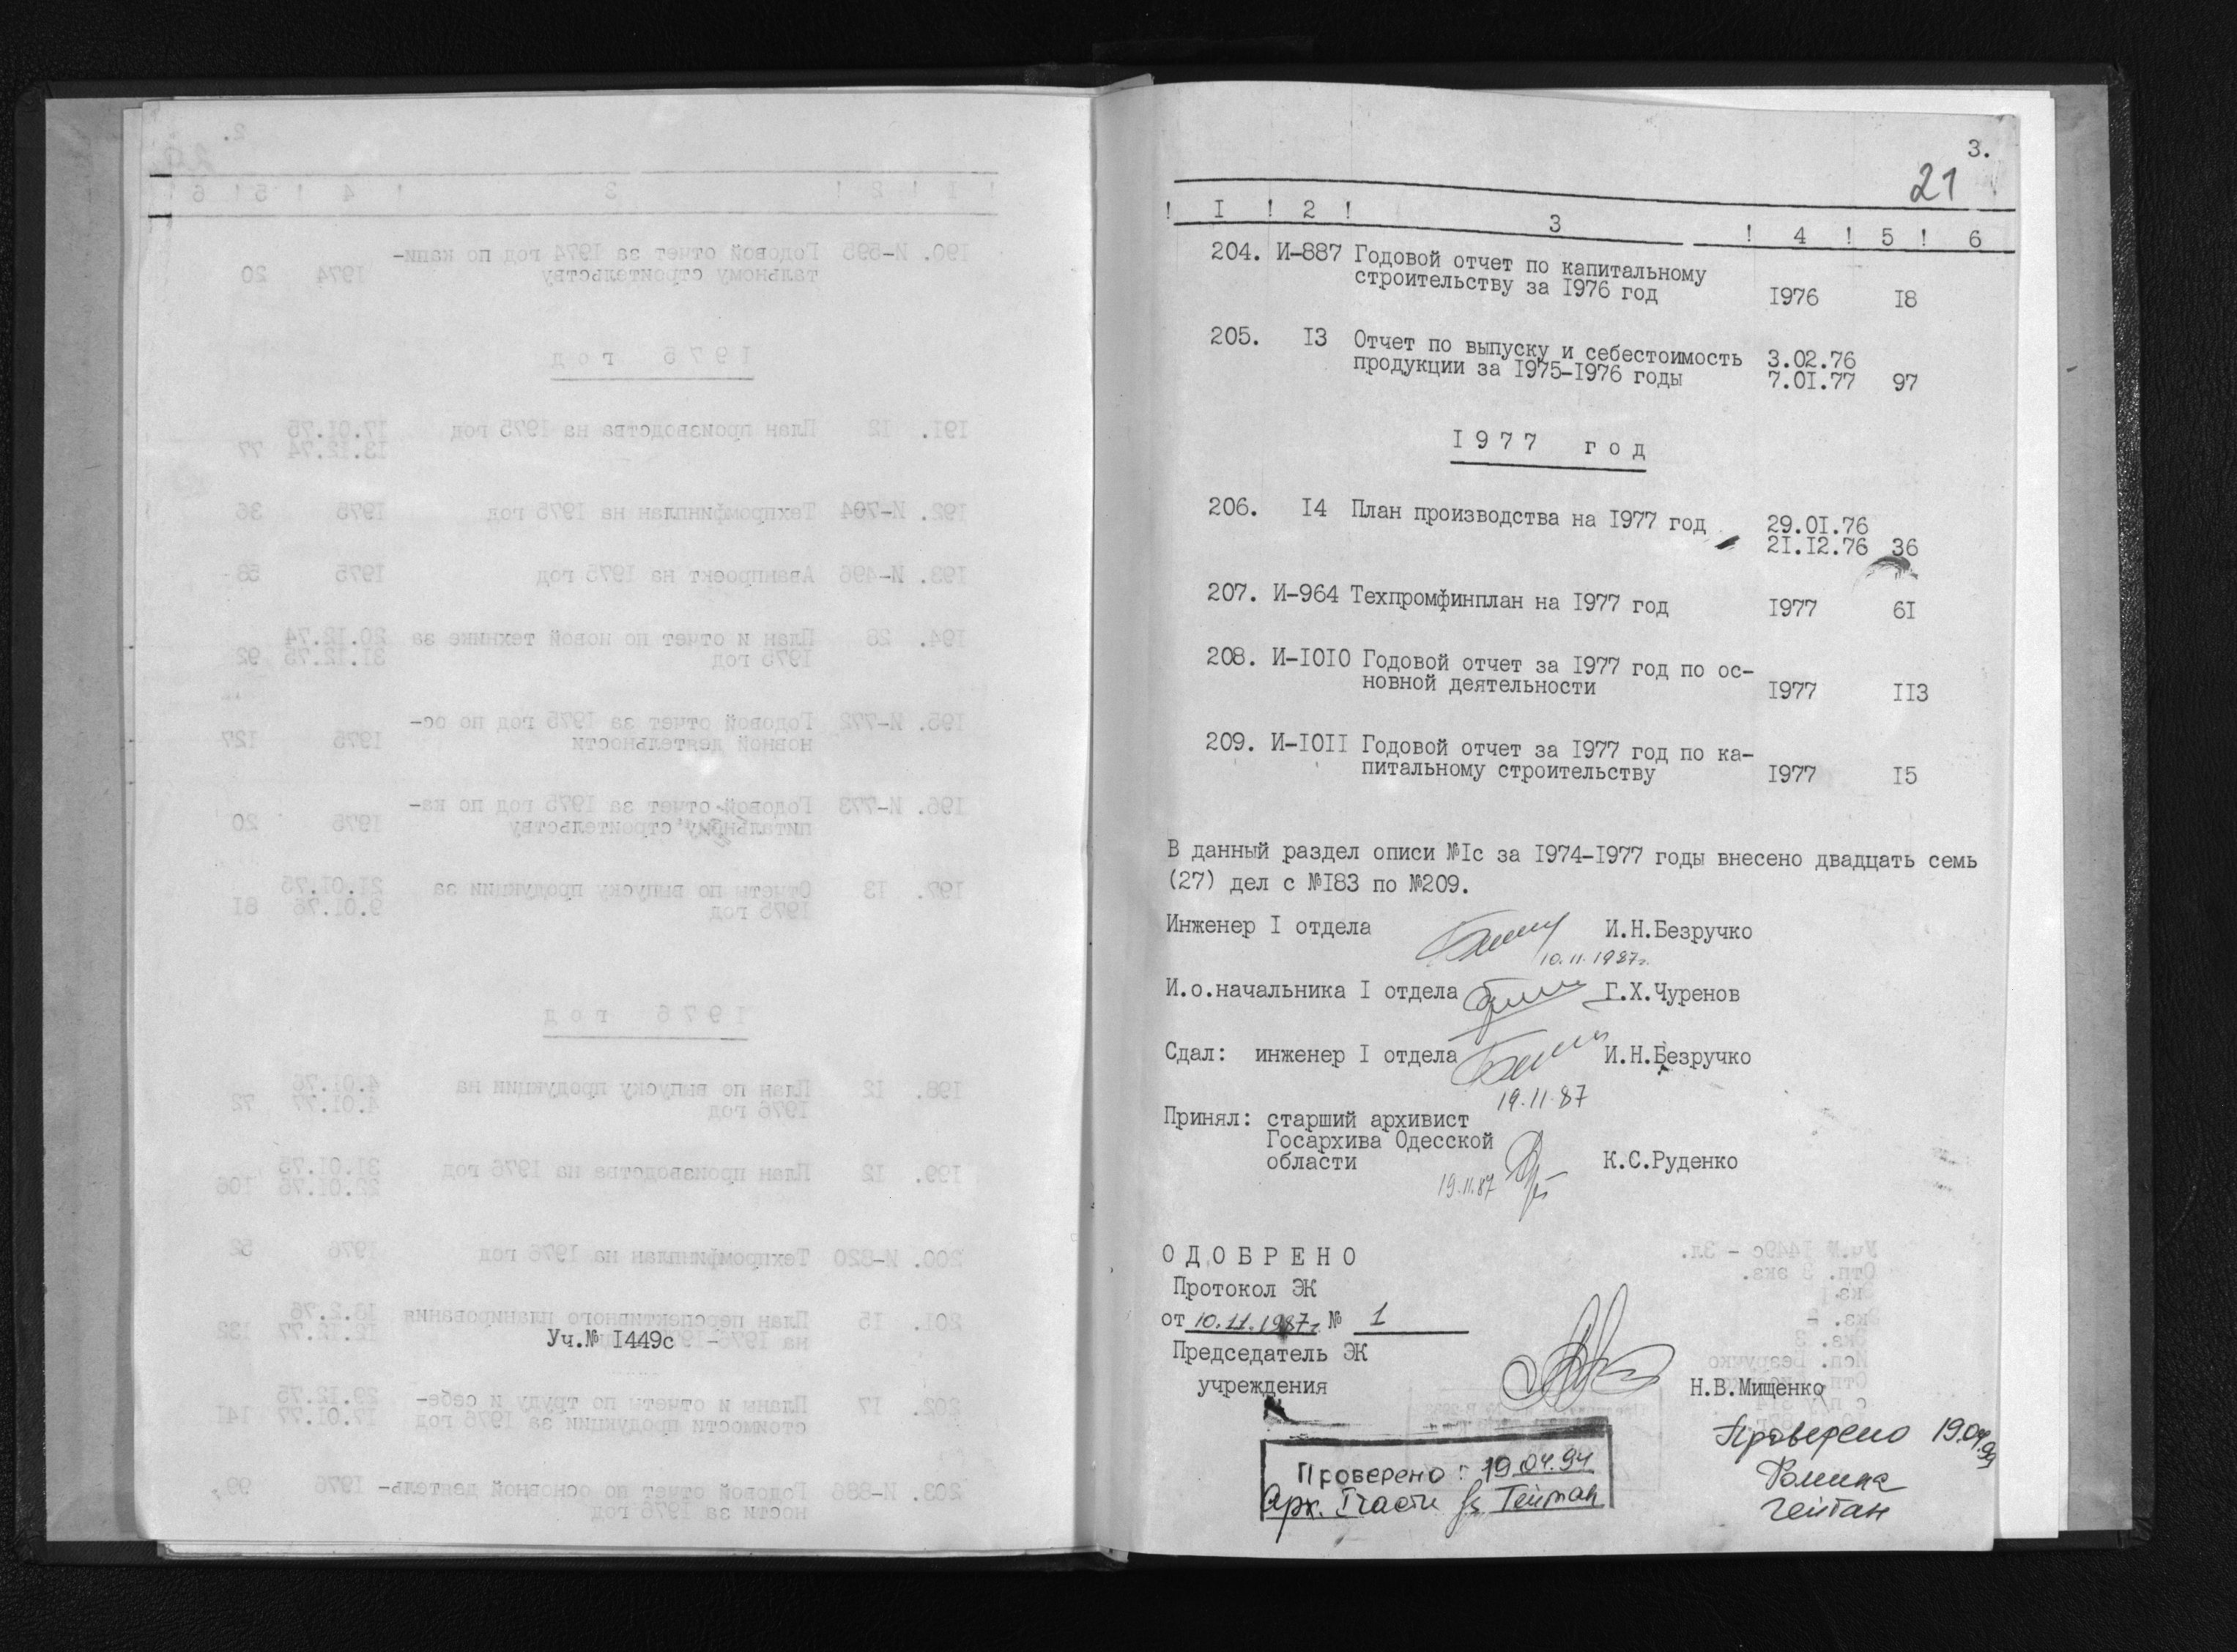 Уч.№ I449с -
3.
21
! I ! 2 ! 3 ! 4 ! 5 ! 6
204. И-887 Годовой отчет по капитальному
строительству за I976 год I976 I8
205. I3 Отчет по выпуску и себестоимость 3.02.76
продукции за I975-I976 годы 7.0I.77 97
I 9 7 7 г о д
206. I4 План производства на I977 год 29.0I.76
2I.I2.76 36
207. И-964 Техпромфинплан на I977 год I977 6I
208. И-I0I0 Годовой отчет за I977 год по ос-
новной деятельности I977 II3
209. И-I0II Годовой отчет за I977 год по ка-
питальному строительству I977 I5
В данный раздел описи №Iс за I974-I977 годы внесено двадцать семь
(27) дел с №I83 по №209.
Инженер I отдела И.Н.Безручко
10.11.1987г.
И.о.начальника I отдела Г.Х.Чуренов
Сдал: инженер I отдела И.Н.Безручко
19.11.87
Принял: старший архивист
Госархива Одесской
области К.С.Руденко
19.11.87
О Д О Б Р Е Н О
Протокол ЭК
от 10.11.1987г. № 1
Председатель ЭК
учреждения Н.В.Мищенко
Проверено 19.04.94
Проверено: 19.04.94
Арх. I части Гейтан
Гейтан